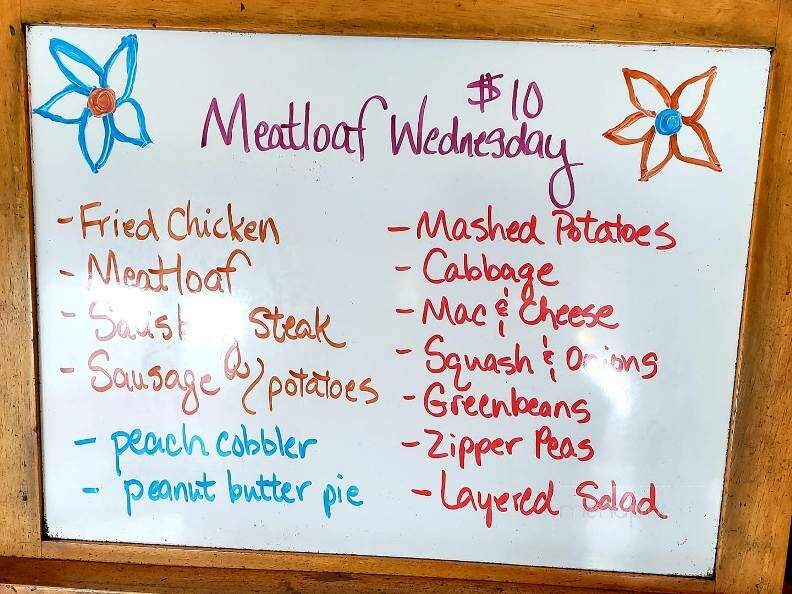 $10
Meatloaf Wednesday
- Fried Chicken
- Meatloaf
- steak
- Sausage & potatoes
- peach cobbler
- peanut butter pie
- Mashed Potatoes
- Cabbage
- Mac & Cheese
- Squash & Onions
- Greenbeans
- Zipper Peas
- Layered Salad